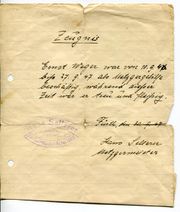 Zeugnis
Ernst Weger war von 11.9.46
bis 27.9.47 als Metzgergehilfe
beschäftig, während dieser
Zeit war er treu und fleißig.
Fürth, den
Hans
Metzgermeister